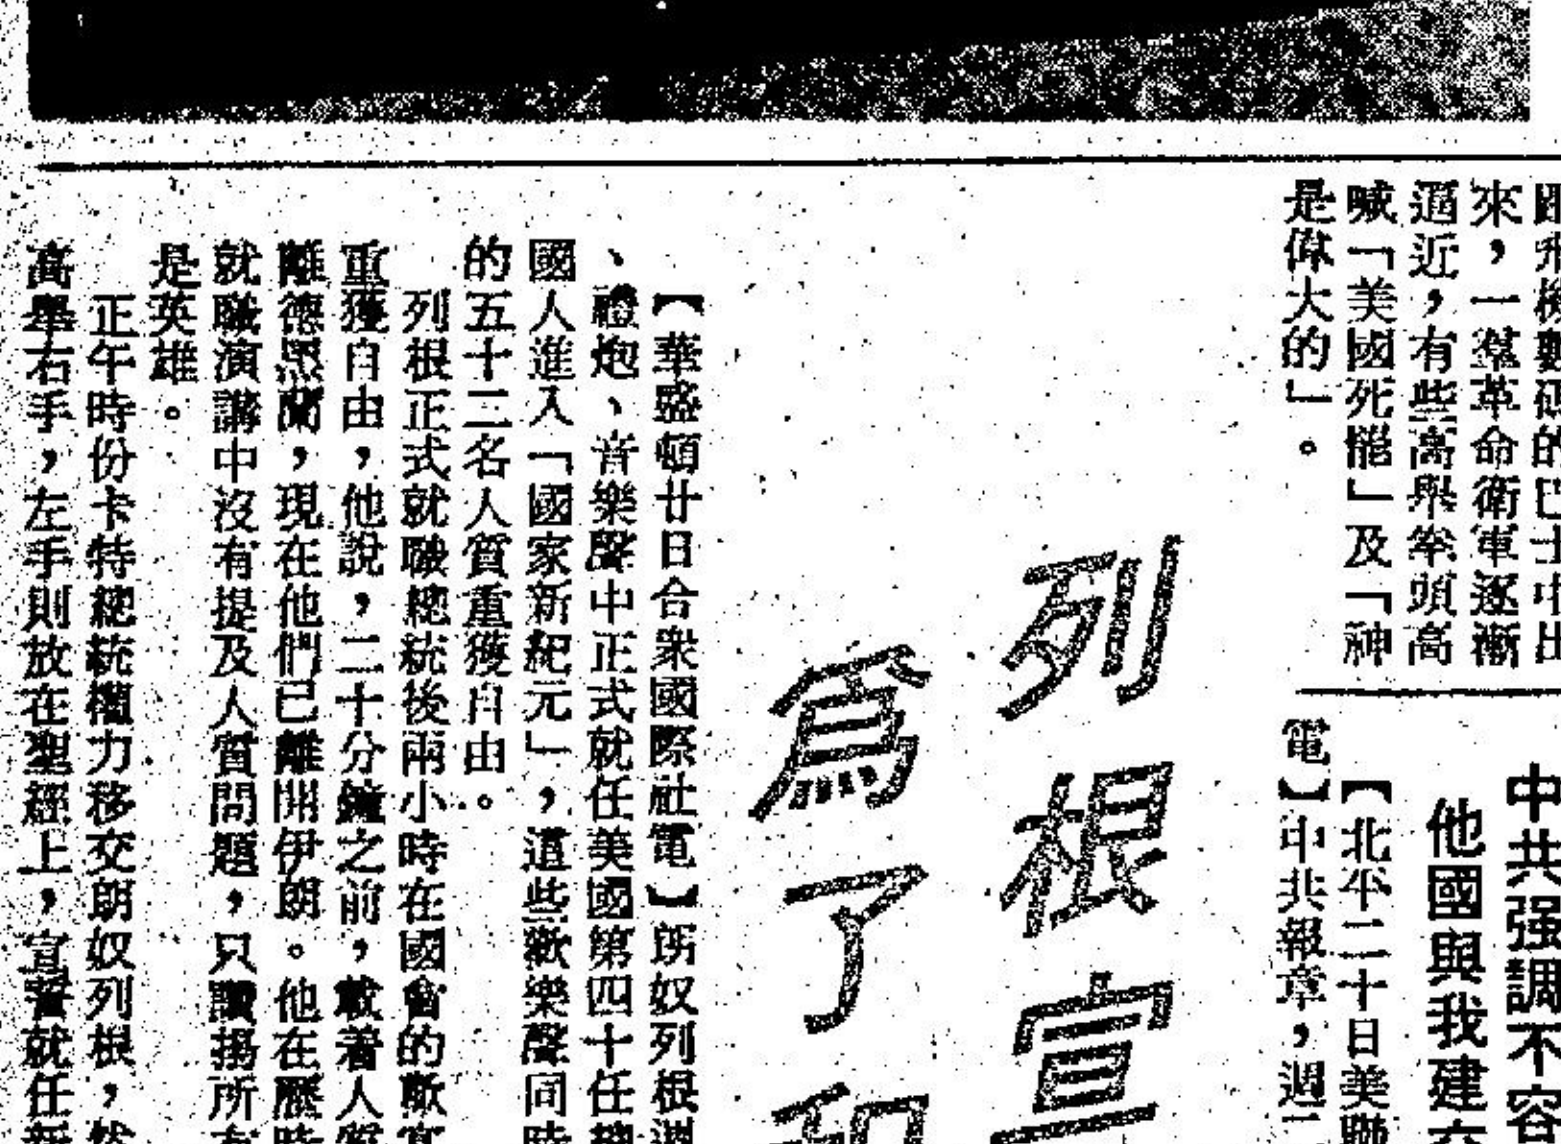 來，一羣革命衛軍逐漸
逼近，有些高舉拳頭高
喊「美國死罷」及「神
是偉大的」。
中共强調不容
他國與我建
【北平二十日美聯
電】中共報章，週
列根宣
爲了和
【華盛頓廿日合衆國際社電】朗奴列根週
、禮炮、音樂聲中正式就任美國第四十任總
國人進入「國家新紀元」，這些歡樂聲同時
的五十二名人質重獲自由。
列根正式就職總統後兩小時在國會的歡宴
重獲自由，他說，二十分鐘之前，載着人質
離德黑蘭，現在他們已離開伊朗。他在歷時
就職演講中沒有提及人質問題，只讚揚所有
是英雄。
正午時份卡特總統權力移交朗奴列根，然
高舉右手，左手則放在聖經上，宣誓就任新